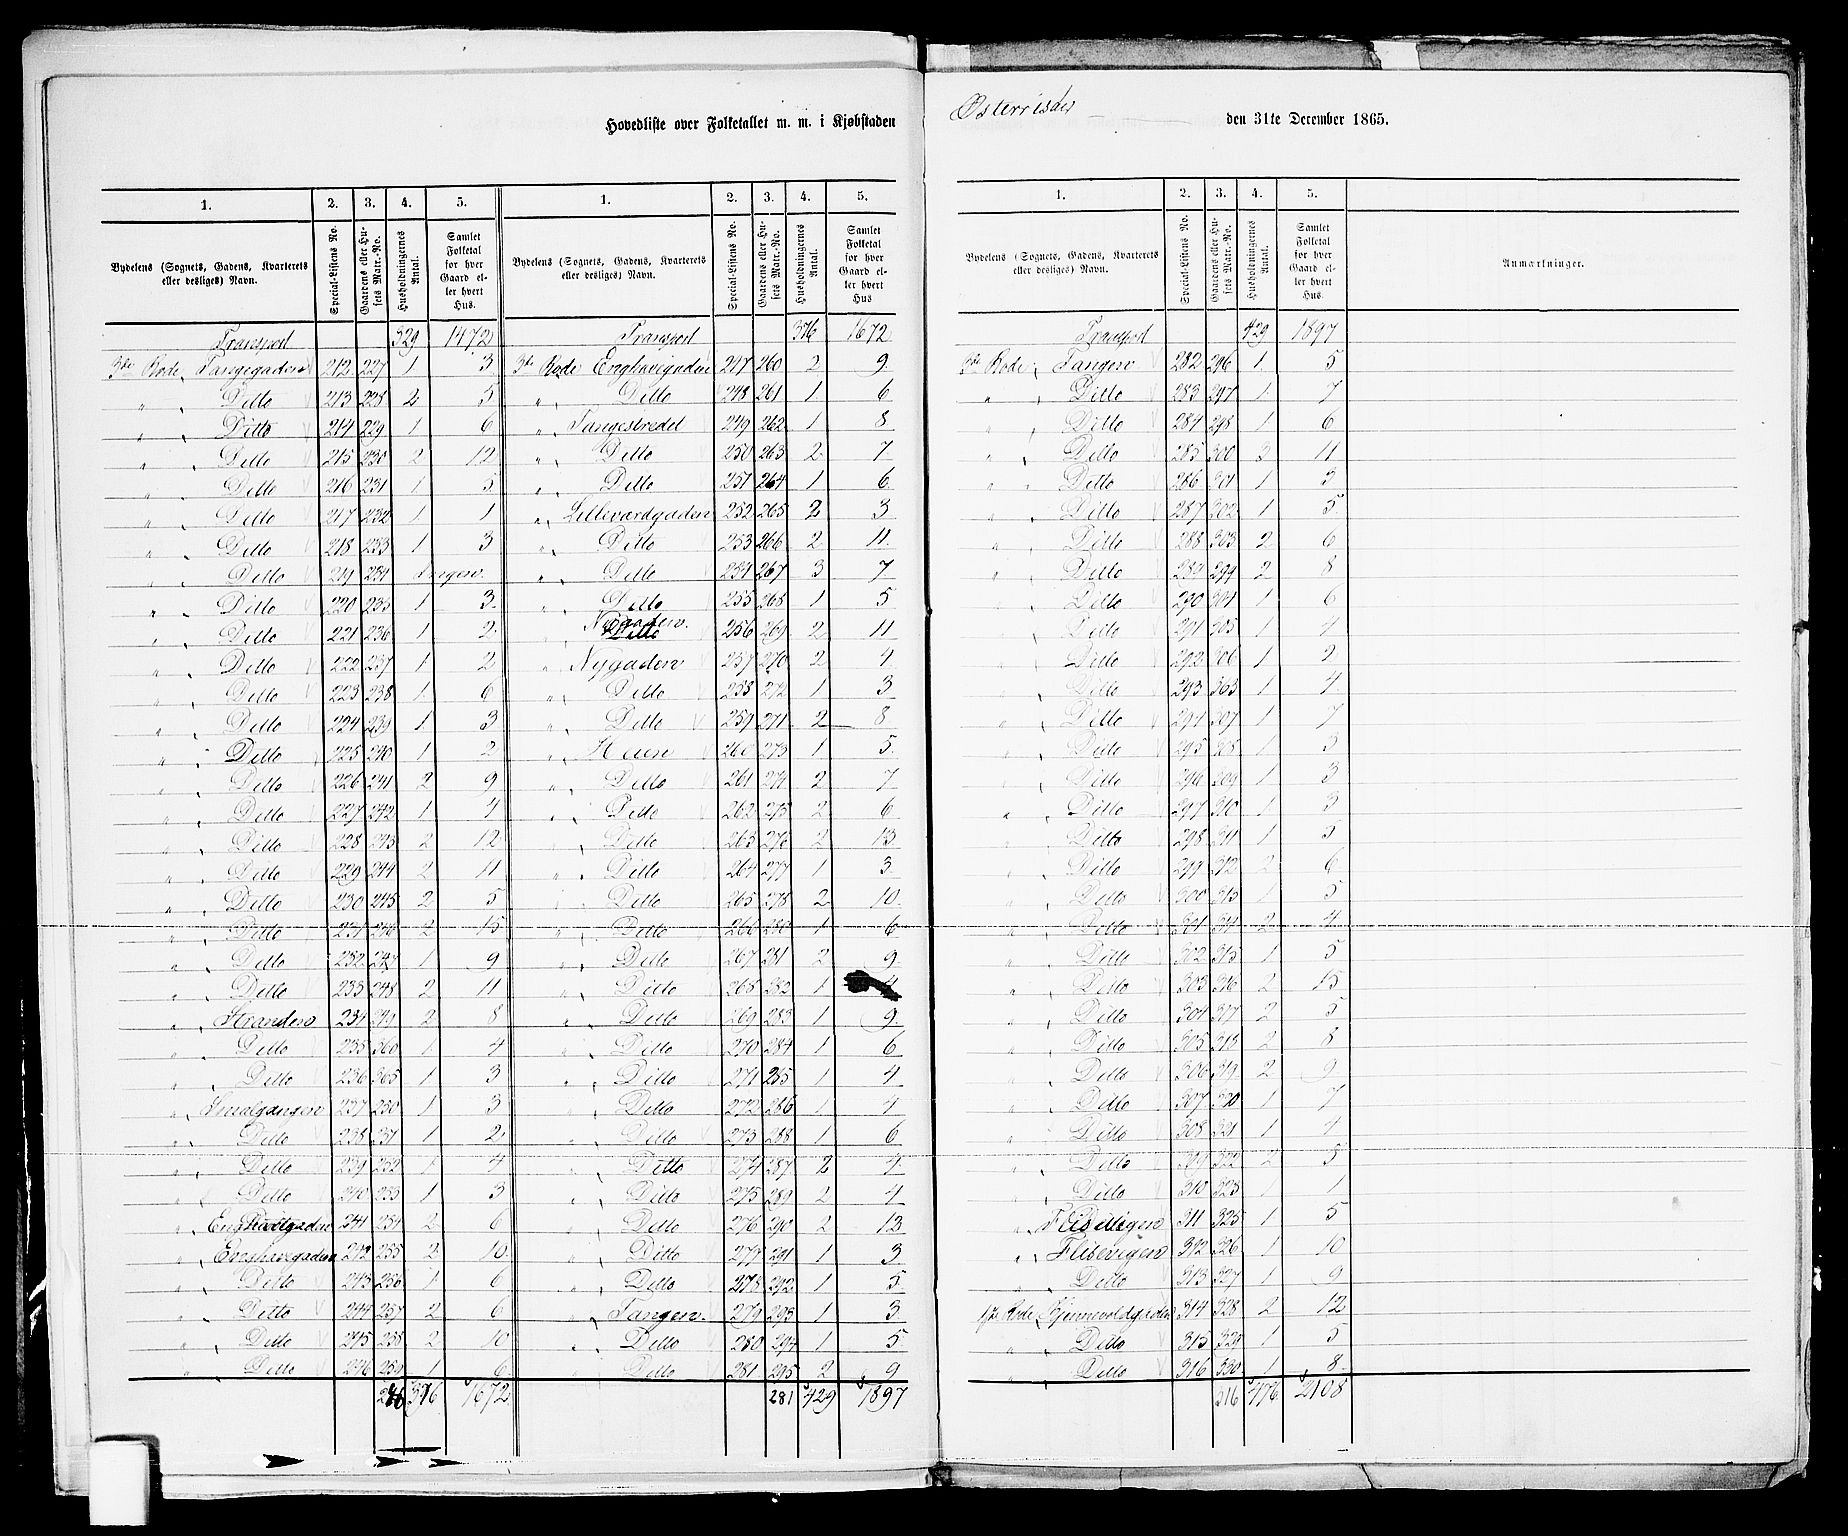 Hovedliste over Folketallet m. m. i Kjøbstaden Østerrisøer den 31te December 1865.
1. 2. 3. 4. 5.
Bydelens (Sognets, Gadens, Kvarterets eller desliges) Navn. Special-Listens No. Gaardens eller Husets Matr.-No. Husholdningernes Antal. Samlet Folketal for hver Gaard eller hvert Hus.
Transport 329 1472
3die Rode, Tangegaden 212 227 1 3
" , Ditto 213 228 2 5
" , Ditto 214 229 1 6
" , Ditto 215 230 2 12
" , Ditto 216 231 1 5
" , Ditto 217 232 1 1
" , Ditto 218 233 1 3
" , Ditto 219 234 Ingen
" , Ditto 220 235 1 3
" , Ditto 221 236 1 2
" , Ditto 222 237 1 2
" , Ditto 223 238 1 6
" , Ditto 224 239 1 3
" , Ditto 225 240 1 2
" , Ditto 226 241 2 9
" , Ditto 227 242 1 4
" , Ditto 228 243 2 12
" , Ditto 229 244 2 11
" , Ditto 230 245 2 5
" , Ditto 231 246 2 15
" , Ditto 232 247 1 9
" , Ditto 233 248 2 11
" , Stranden 234 249 2 8
" , Ditto 235 360 1 4
" , Ditto 236 365 1 3
" , Smalgangen 237 250 1 3
" , Ditto 238 251 1 2
" , Ditto 239 252 1 4
" , Ditto 240 253 1 3
" , Enghavegaden 241 254 2 6
" , Enghavegaden 242 255 2 10
" , Ditto 243 256 1 6
" , Ditto 244 257 2 6
" , Ditto 245 258 2 10
" , Ditto 246 259 1 6
246 376 1672
1. 2. 3. 4. 5.
Bydelens (Sognets, Gadens, Kvarterets eller desliges) Navn. Special-Listens No. Gaardens eller Husets Matr.-No. Husholdningernes Antal. Samlet Folketal for hver Gaard eller hvert Hus
Transport 376 1672
3die Rode Enghavegaden 247 260 2 9
" , Ditto 248 261 1 6
" , Tangestredet 249 262 1 8
" , Ditto 250 263 2 7
" , Ditto 251 264 1 6
" , Lillevardgaden 252 265 2 3
" , Ditto 253 266 2 11
" , Ditto 254 267 3 7
" , Ditto 255 268 1 5
" , Nygaden 256 269 2 11
" , Nygaden 257 270 2 4
" , Ditto 258 272 1 3
" , Ditto 259 271 2 8
" , Heien 260 273 1 5
" , Ditto 261 274 2 7
" , Ditto 262 275 2 6
" , Ditto 263 276 2 13
" , Ditto 264 277 1 3
" , Ditto 265 278 2 10
" , Ditto 266 280 1 6
" , Ditto 267 281 2 9
" , Ditto 268 282 1 4
" , Ditto 269 283 1 9
" , Ditto 270 284 1 6
" , Ditto 271 285 1 4
" , Ditto 272 286 1 4
" , Ditto 273 288 1 6
" , Ditto 274 287 2 4
" , Ditto 275 289 2 4
" , Ditto 276 290 2 13
" , Ditto 277 291 1 3
" , Ditto 278 292 1 5
" , Tangen 279 293 1 3
" , Ditto 280 294 1 5
" , Ditto 281 295 2 9
281 429 1897
1. 2. 3. 4. 5.
Bydelens (Sognets, Gadens, Kvarterets eller desliges) Navn. Special-Listens No. Gaardens eller Husets Matr.-No. Husholdningernes Antal. Samlet Folketal for hver Gaard eller hvert Hus. Anmærkninger.
Transport 429 1897
3die Rode, Tangen 282 296 1 5
" , Ditto 283 297 1 7
" , Ditto 284 298 1 6
" , Ditto 285 300 3 11
" , Ditto 286 301 1 3
" , Ditto 287 302 1 5
" , Ditto 288 303 2 6
" , Ditto 289 299 2 8
" , Ditto 290 304 1 6
" , Ditto 291 305 1 4
" , Ditto 292 306 1 2
" , Ditto 293 363 1 4
" , Ditto 294 307 1 7
" , Ditto 295 308 1 3
" , Ditto 296 309 1 3
" , Ditto 297 310 1 3
" , Ditto 298 311 1 5
" , Ditto 299 312 2 6
" , Ditto 300 313 1 5
" , Ditto 301 314 2 4
" , Ditto 302 315 1 5
" , Ditto 303 316 2 15
" , Ditto 304 317 2 5
" , Ditto 305 318 2 8
" , Ditto 306 319 2 9
" , Ditto 307 320 1 7
" , Ditto 308 321 1 4
" , Ditto 309 322 2 5
" , Ditto 310 323 1 1
" , Flisvigen 311 325 1 5
" , Flisvigen 312 326 1 10
" , Ditto 313 327 1 9
Rode, 314 328 2 12
" , Ditto 315 329 1 5
" , Ditto 316 330 1 8
316 476 2108